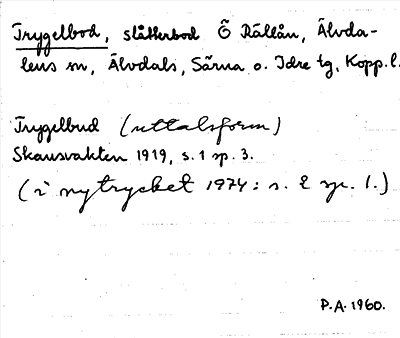 Trygelbod, slåtterbod Ö Rällån, Älvda-
lens sn, Älvdals, Särna o. Idre tg, Kopp.l.
Trygelbud (uttalsform)
Skansvakten 1919, s. 1 sp. 3.
(i nytrycket 1974: s. 2 sp. 1.)
P.A. 1960.